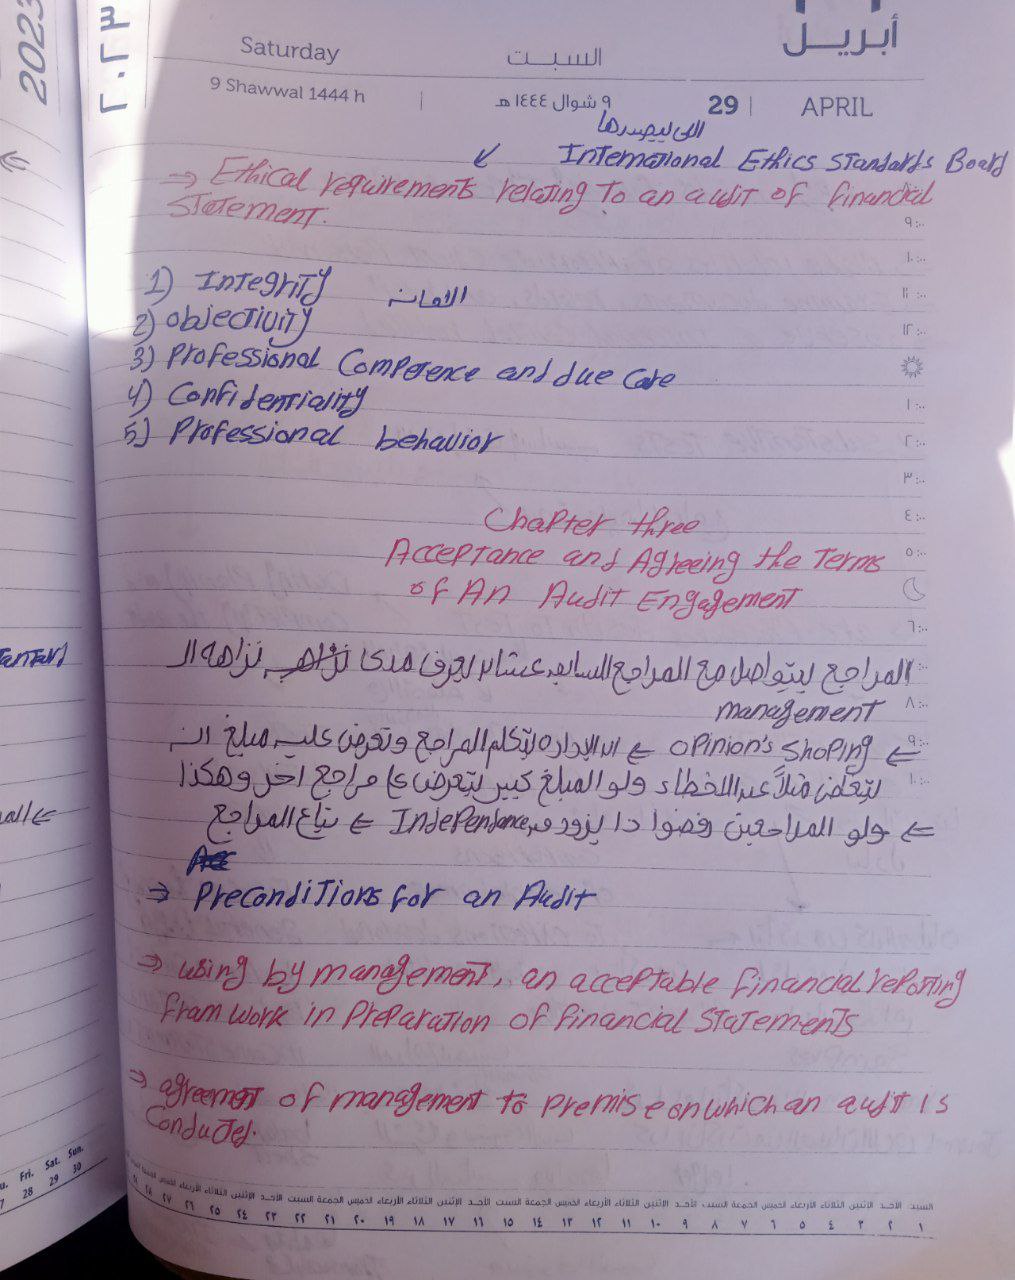 2023
٢٠٢٣
أبريل
Saturday
السبت
9 Shawwal 1444 h
٩ شوال ١٤٤٤ هـ
29
APRIL
اللى بيصدرها
International Ethics Standards Board
⇒ Ethical requirements relating to an audit of financial
statement.
1) Integrity الامانه
2) objectivity
3) Professional Competence and due care
4) Confidentiality
5) Professional behavior
Chapter three
Acceptance and Agreeing the Terms
of An Audit Engagement
المراجع بيتواصل مع المراجع السابق عشان يعرف مدى نزاهه الـ
management
⇐ opinion's shoping ⇐ ان الاداره بتكلم المراجع وتعرض عليه مبلغ انه
يتغاضى مثلاً عن الاخطاء ولو المبلغ كبير بتعرض على مراجع اخر وهكذا
⇐ ولو المراجعين رفضوا دا يزود من Independance ⇐ بتاع المراجع
⇒ Preconditions for an Audit
⇒ using by management, an acceptable financial reporting
fram work in preparation of financial statements
⇒ agreement of management to premise on which an audit is
Conducted.
٩:٠٠
١٠:٠٠
١١:٠٠
١٢:٠٠
١:٠٠
٢:٠٠
٣:٠٠
٤:٠٠
٥:٠٠
٦:٠٠
٨:٠٠
٩:٠٠
١٠:٠٠
Fri. Sat. Sun.
28 29 30
السبت الأحد الإثنين الثلاثاء الأربعاء الخميس الجمعة السبت الأحد الإثنين الثلاثاء الأربعاء الخميس الجمعة السبت الأحد الإثنين الثلاثاء الأربعاء الخميس الجمعة السبت الأحد الإثنين الثلاثاء الأربعاء
١ ٢ ٣ ٤ ٥ ٦ ٧ ٨ ٩ ١٠ ١١ ١٢ ١٣ ١٤ ١٥ ١٦ ١٧ ١٨ ١٩ ٢٠ ٢١ ٢٢ ٢٣ ٢٤ ٢٥ ٢٦ ٢٧